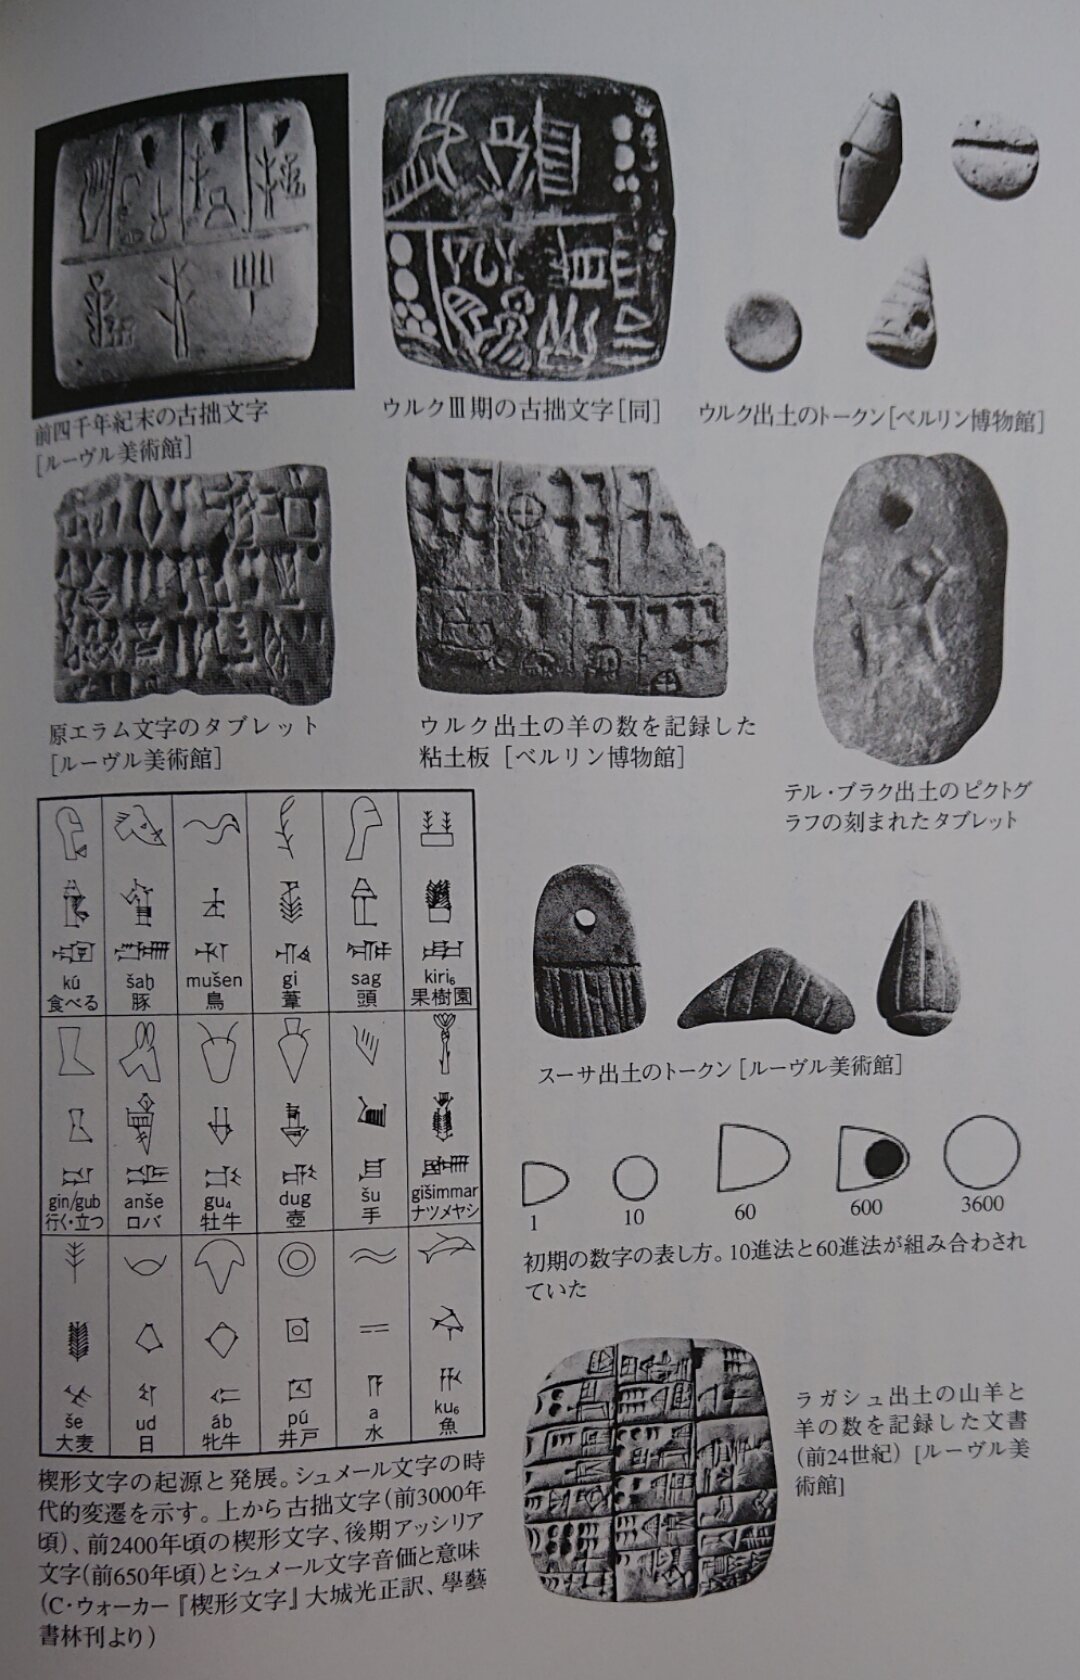 前四千年紀末の古拙文字
[ルーヴル美術館]
ウルクⅢ期の古拙文字[同]
ウルク出土のトークン[ベルリン博物館]
原エラム文字のタブレット
[ルーヴル美術館]
ウルク出土の羊の数を記録した
粘土板 [ベルリン博物館]
テル・ブラク出土のピクトグ
ラフの刻まれたタブレット
kú šaḫ mušen gi sag kiri₆
食べる 豚 鳥 葦 頭 果樹園
gin/gub anše gu₄ dug šu gišimmar
行く・立つ ロバ 牡牛 壺 手 ナツメヤシ
še ud áb pú a ku₆
大麦 日 牝牛 井戸 水 魚
楔形文字の起源と発展。シュメール文字の時
代的変遷を示す。上から古拙文字(前3000年
頃)、前2400年頃の楔形文字、後期アッシリア
文字(前650年頃)とシュメール文字音価と意味
(C・ウォーカー『楔形文字』大城光正訳、學藝
書林刊より)
スーサ出土のトークン[ルーヴル美術館]
1 10 60 600 3600
初期の数字の表し方。10進法と60進法が組み合わされ
ていた
ラガシュ出土の山羊と
羊の数を記録した文書
(前24世紀) [ルーヴル美
術館]